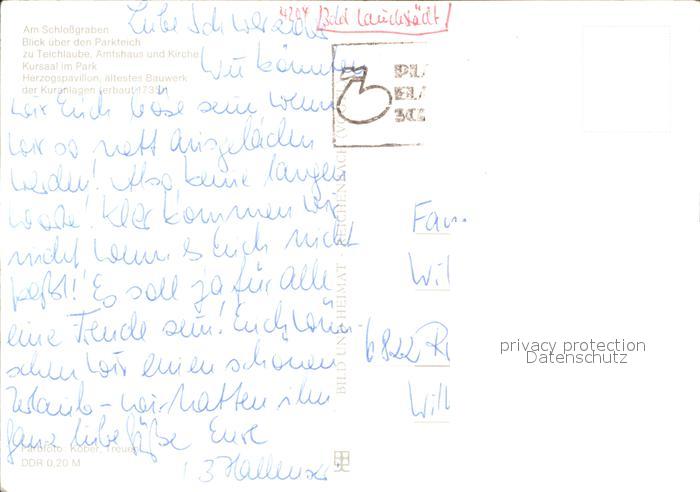 4204 Bad Lauchstädt
Am Schloßgraben
Blick über den Parkteich
zu Teichlaube, Amtshaus und Kirche
Kursaal im Park
Herzogspavillon, ältestes Bauwerk
der Kuranlagen (erbaut 1735)
Liebe Schwarzins
Wie könnten
wir Euch böse sein wenn
wir so nett ausgeladen
werden! Also keine langen
Worte! Klar kommen wir
nicht wenn es Euch nicht
paßt! Es soll ja für alle
eine Freude sein! Euch wün-
schen wir einen schönen
Urlaub - wir hatten ihn
ganz liebe Grüße Eure
3 Hallenser
Farbfoto: Kober, Treuen
DDR 0,20 M
BILD UND HEIMAT · REICHENBACH (VOGTL
Fam.
Wil
6822 R
Will
privacy protection
Datenschutz